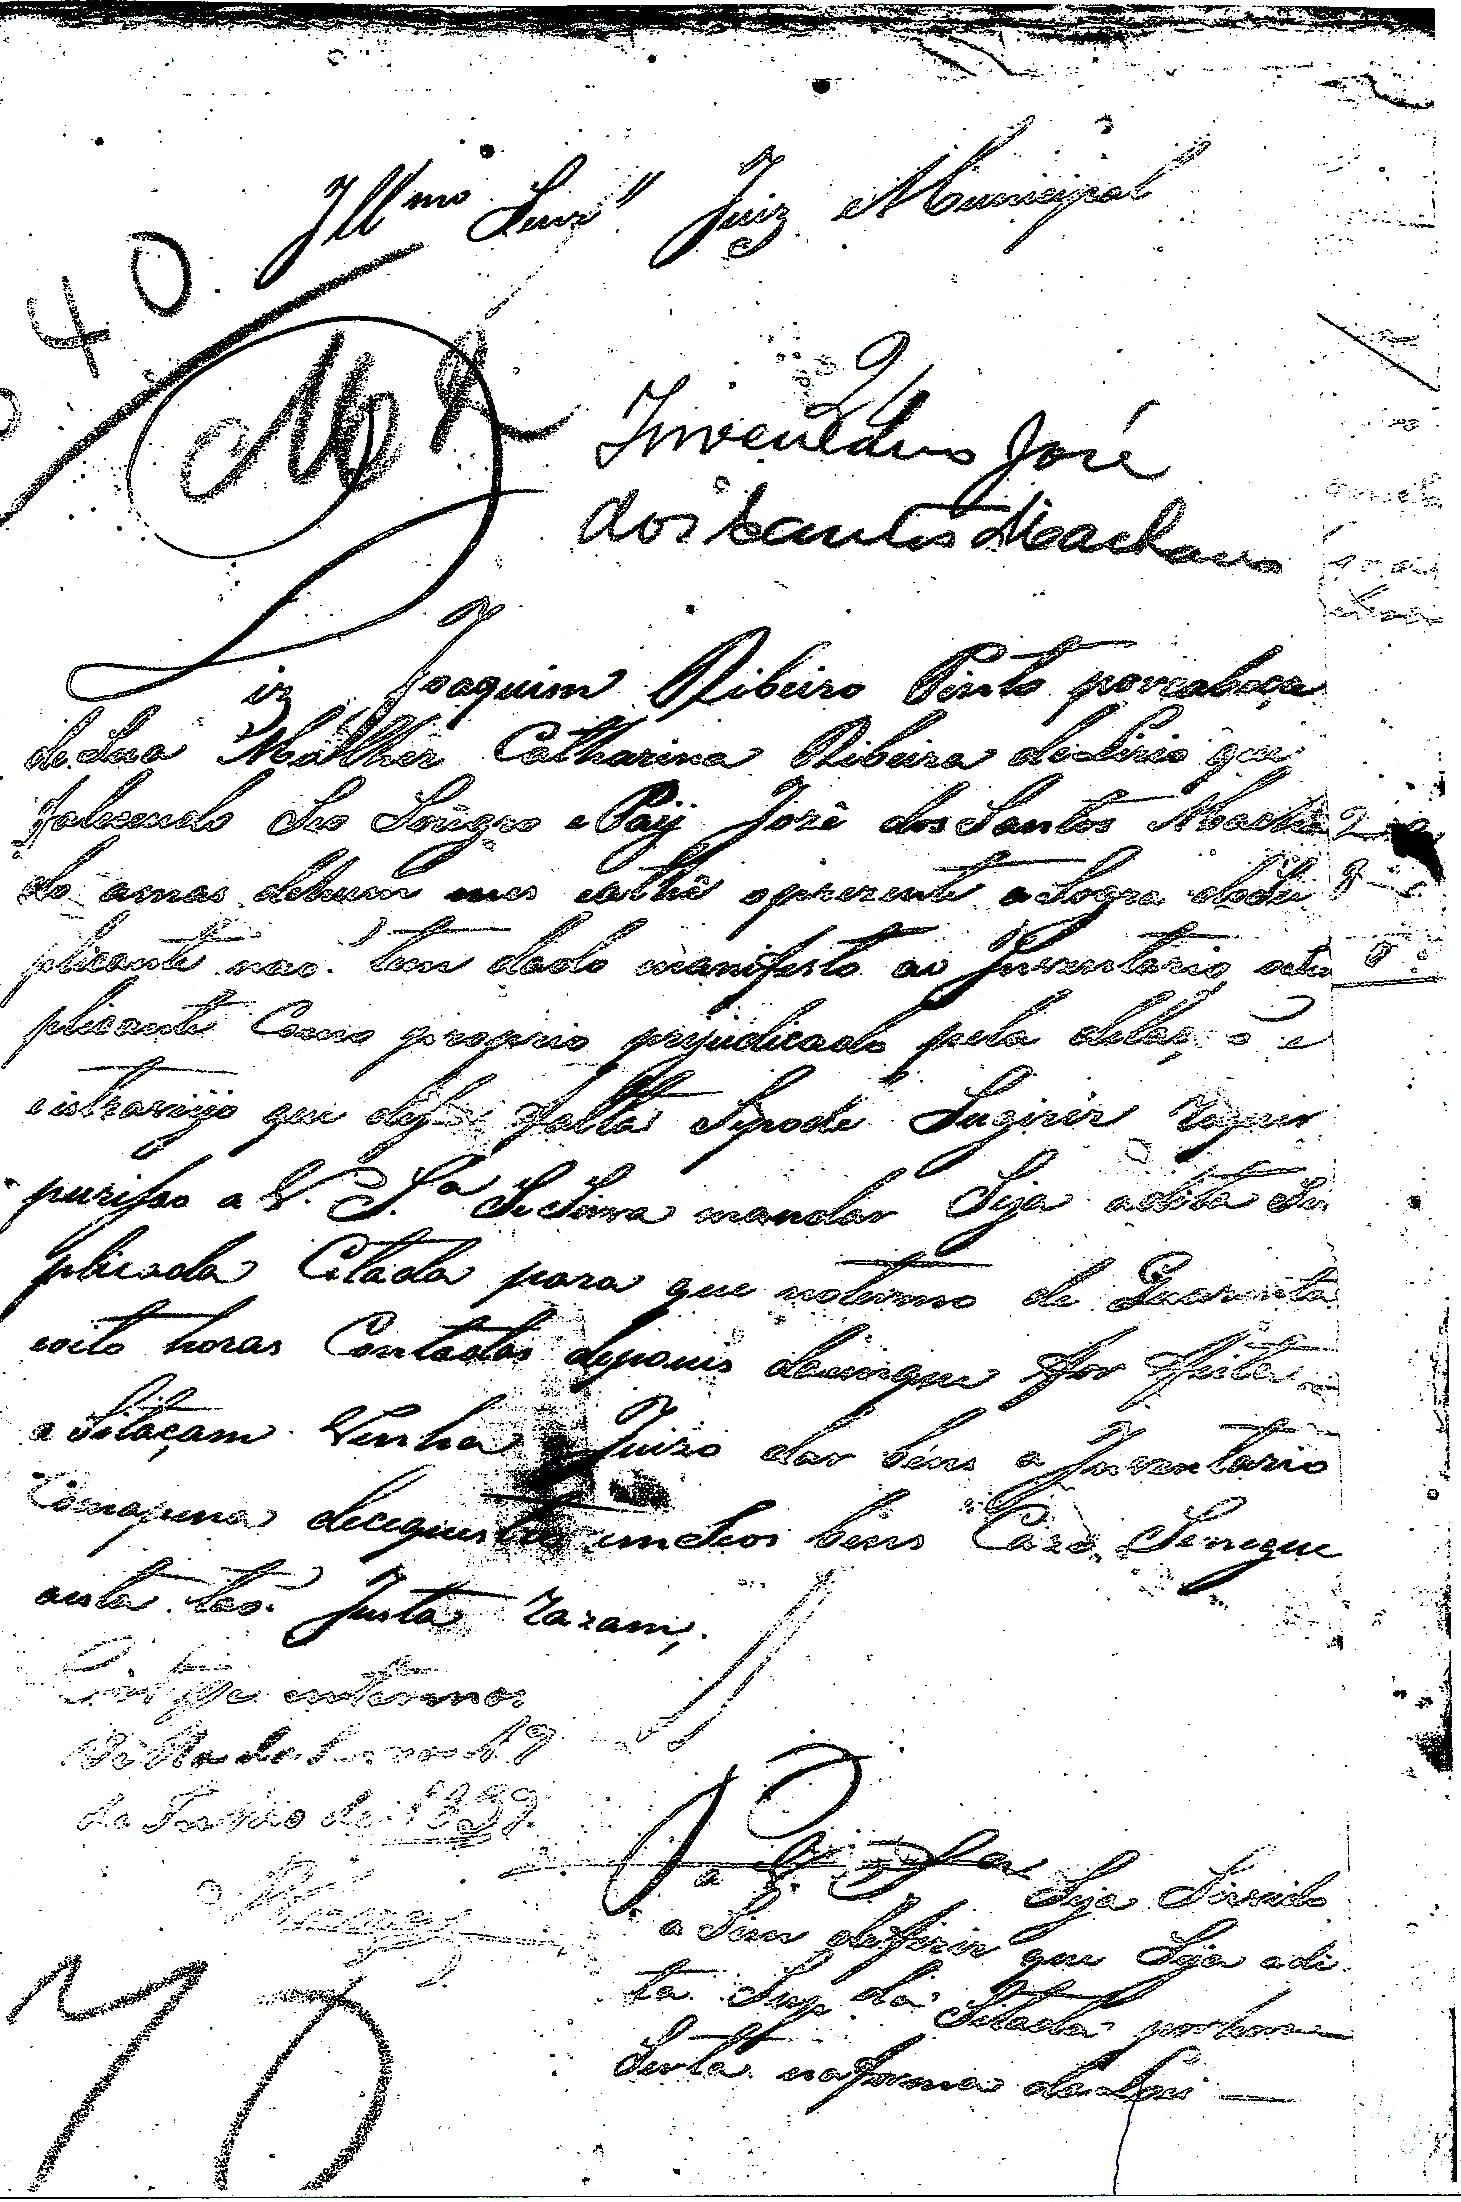 Ill.mo Senr" Juiz Municipal
40
Inventario José
dos Santos Machado
Diz Joaquim Ribeiro Pinto por cabeça
de Sua Mulhér Catharina Ribeira de Lirio que
falecendo Seo Sougro e Paÿ José dos Santos Macha
do amas dehum mes eathé oprezente a Sogra do Su
plicante naõ tem dado manifesto ao Inventario, eo Su
plicante Como proprio prejudicado pela dellaçaõ e
e istravijo que desta falta Sepode Sugirir requer
purisso a V. S.a Se Sirva mandar Seja adita Su
plicada Citada para que notermo de Quarenta
eoito horas Contadas depouis daemque for feita
a Sitaçam Venha a Juizo dar béns a Inventario
Comapena decequestro em Seos béns Cazo Senegue
aista Seo Justa razam,
Cite-se em termos
de Janeiro de 1839.
P. a V. S.a Seja Sirvido
a Sim defferir que Seja adi
ta Sup.da Sitada por hora
Serta na forma da Lei —